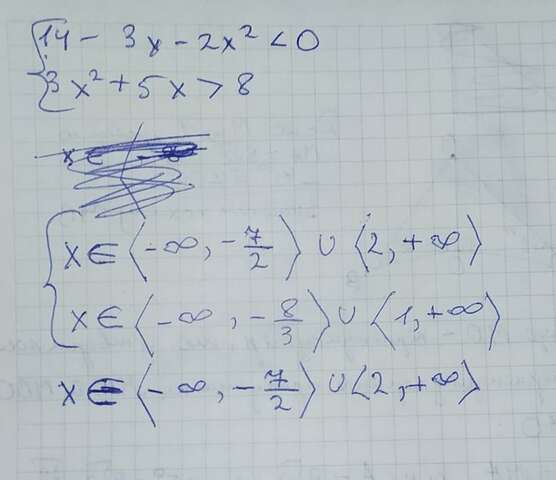 14 - 3x - 2x² < 0
3x² + 5x > 8
x ∈ ⟨-∞, -7/2⟩ ∪ ⟨2, +∞⟩
x ∈ ⟨-∞, -8/3⟩ ∪ ⟨1, +∞⟩
x ∈ ⟨-∞, -7/2⟩ ∪ ⟨2, +∞⟩